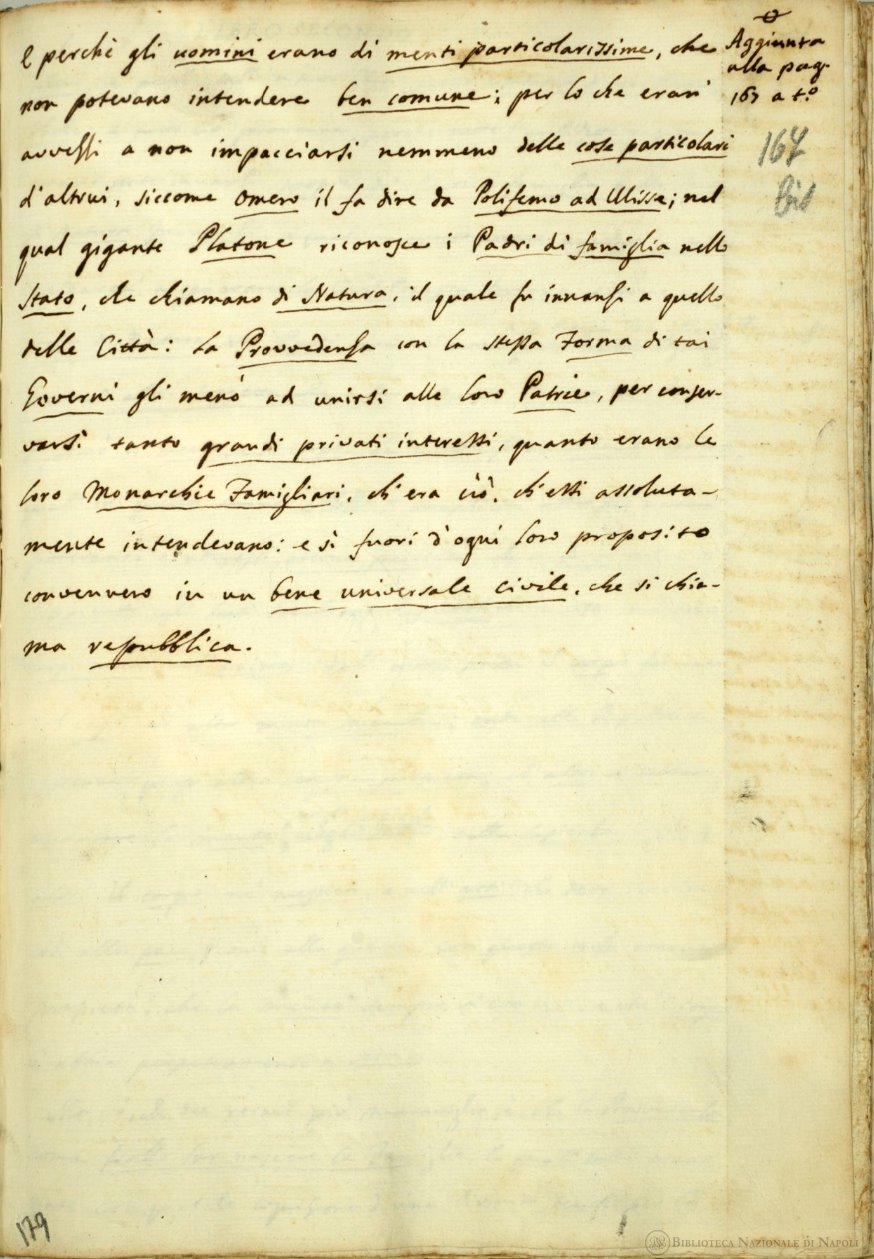 E perchè gli uomini erano di menti particolarissime, che
non potevano intendere ben comune; per lo che eran'
avvessi a non impacciarsi nemmeno delle cose particolari
d'altrui, siccome Omero il fa dire da Polifemo ad Ulisse; nel
qual gigante Platone riconosce i Padri di famiglia nello
Stato, che chiamano di Natura, il quale fu innanzi a quello
delle Città: la Provvedenza con la stessa Forma di tai
Governi gli menò ad unirsi alle loro Patrie, per conser-
varsi tanto grandi privati interessi, quanto erano le
loro Monarchie Famigliari, ch'era ciò, ch'essi assoluta-
mente intendevano: e sì fuori d'ogni loro proposito
convennero in un bene universale civile, che si chia-
ma repubblica.
Aggiunta
alla pag.
167 a t.º
167
bis
179
BIBLIOTECA NAZIONALE DI NAPOLI